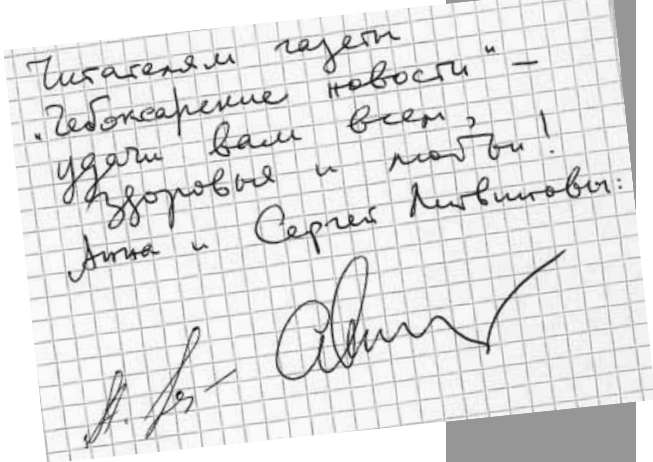 Читателям газеты
"Чебоксарские новости" –
удачи вам всем,
здоровья и любви!
Анна и Сергей Литвиновы: